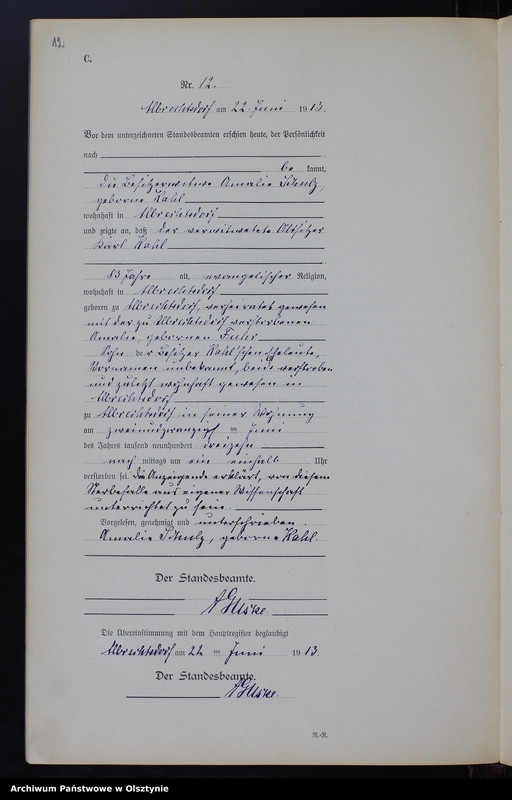 12.
C.
Nr. 12.
Albrechtsdorf am 22. Juni 1913.
Vor dem unterzeichneten Standesbeamten erschien heute, der Persönlichkeit
nach
be kannt,
die Besitzerwitwe Amalie Schulz,
geborne Kahl
wohnhaft in Albrechtsdorf
und zeigte an, daß der verwitwete Altsitzer
Karl Kahl
83 Jahre alt, evangelischer Religion,
wohnhaft in Albrechtsdorf
geboren zu Albrechtsdorf, verheiratet gewesen
mit der zu Albrechtsdorf verstorbenen
Amalie, gebornen Fuhr
Sohn der Besitzer Kahl'schen Eheleute,
Vornamen unbekannt, beide verstorben
und zuletzt wohnhaft gewesen in
Albrechtsdorf
zu Albrechtsdorf in seiner Wohnung
am zweiundzwanzigsten Juni
des Jahres tausend neunhundert dreizehn
nach mittags um ein einhalb Uhr
verstorben sei. Die Anzeigende erklärt, von diesem
Sterbefalle aus eigener Wissenschaft
unterrichtet zu sein.
Vorgelesen, genehmigt und unterschrieben.
Amalie Schulz, geborne Kahl.
Der Standesbeamte.
Die Übereinstimmung mit dem Hauptregister beglaubigt
Albrechtsdorf am 22 ten Juni 1913.
Der Standesbeamte.
N.-R.
Archiwum Państwowe w Olsztynie